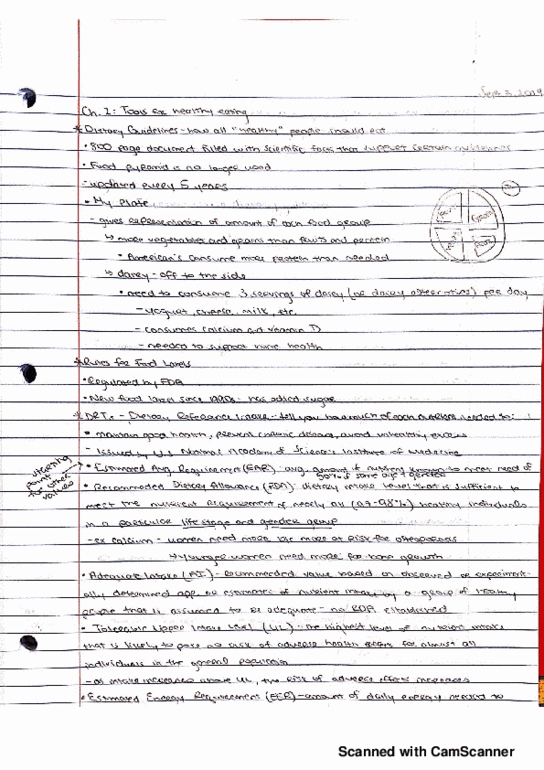 Sep 3, 2019
Ch. 2: Tools for healthy eating
* Dietary Guidelines - how all "healthy" people should eat
• 800 page document filled with scientific facts that support certain guidelines
• Food pyramid is no longer used
- updated every 5 years
• My Plate
- gives representation of amount of each food group
↳ more vegetables and grains than fruits and protein
• American's consume more protein than needed
↳ dairy - off to the side
• need to consume 3 servings of dairy (or dairy alternative) per day
- yogurt, cheese, milk, etc.
- consumes calcium and vitamin D
- needed to support bone health
* Rules for Food Labels
• Regulated by FDA
• New food label since 1990s - has added sugar
* DRI - Dietary Reference Intake - tell you how much of each nutrient needed to:
• maintain good health, prevent chronic disease, avoid unhealthy excess
- Issued by U.S National Academy of Science's Institute of Medicine
starting point for other values
• Estimated Avg Requirement (EAR) - avg. amount of nutrient known to meet need of
50% of same age + gender
• Recommended Dietary Allowance (RDA): dietary intake level that is sufficient to
meet the nutrient requirement of nearly all (97-98%) healthy individuals
in a particular life stage and gender group
- ex calcium - women need more bc more at risk for osteoporosis
↳ younger women need more for bone growth
• Adequate Intake (AI) - recommended value based on observed or experiment-
ally determined app. or estimates of nutrient intake by a group of healthy
people that is assumed to be adequate - no RDA established
• Tolerable Upper Intake Level (UL) - the highest level of nutrient intake
that is likely to pose no risk of adverse health effects for almost all
individuals in the general population
- as intake increases above UL, the risk of adverse effects increases
• Estimated Energy Requirement (EER) - amount of daily energy needed to
Scanned with CamScanner